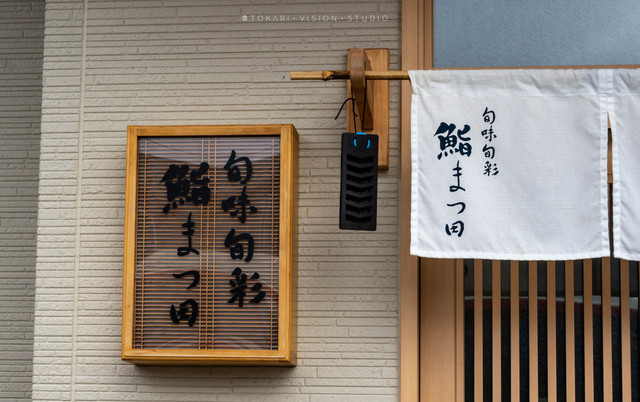 TOKARI・VISION・STUDIO
旬味旬彩
鮨まつ田
旬味旬彩
鮨まつ田